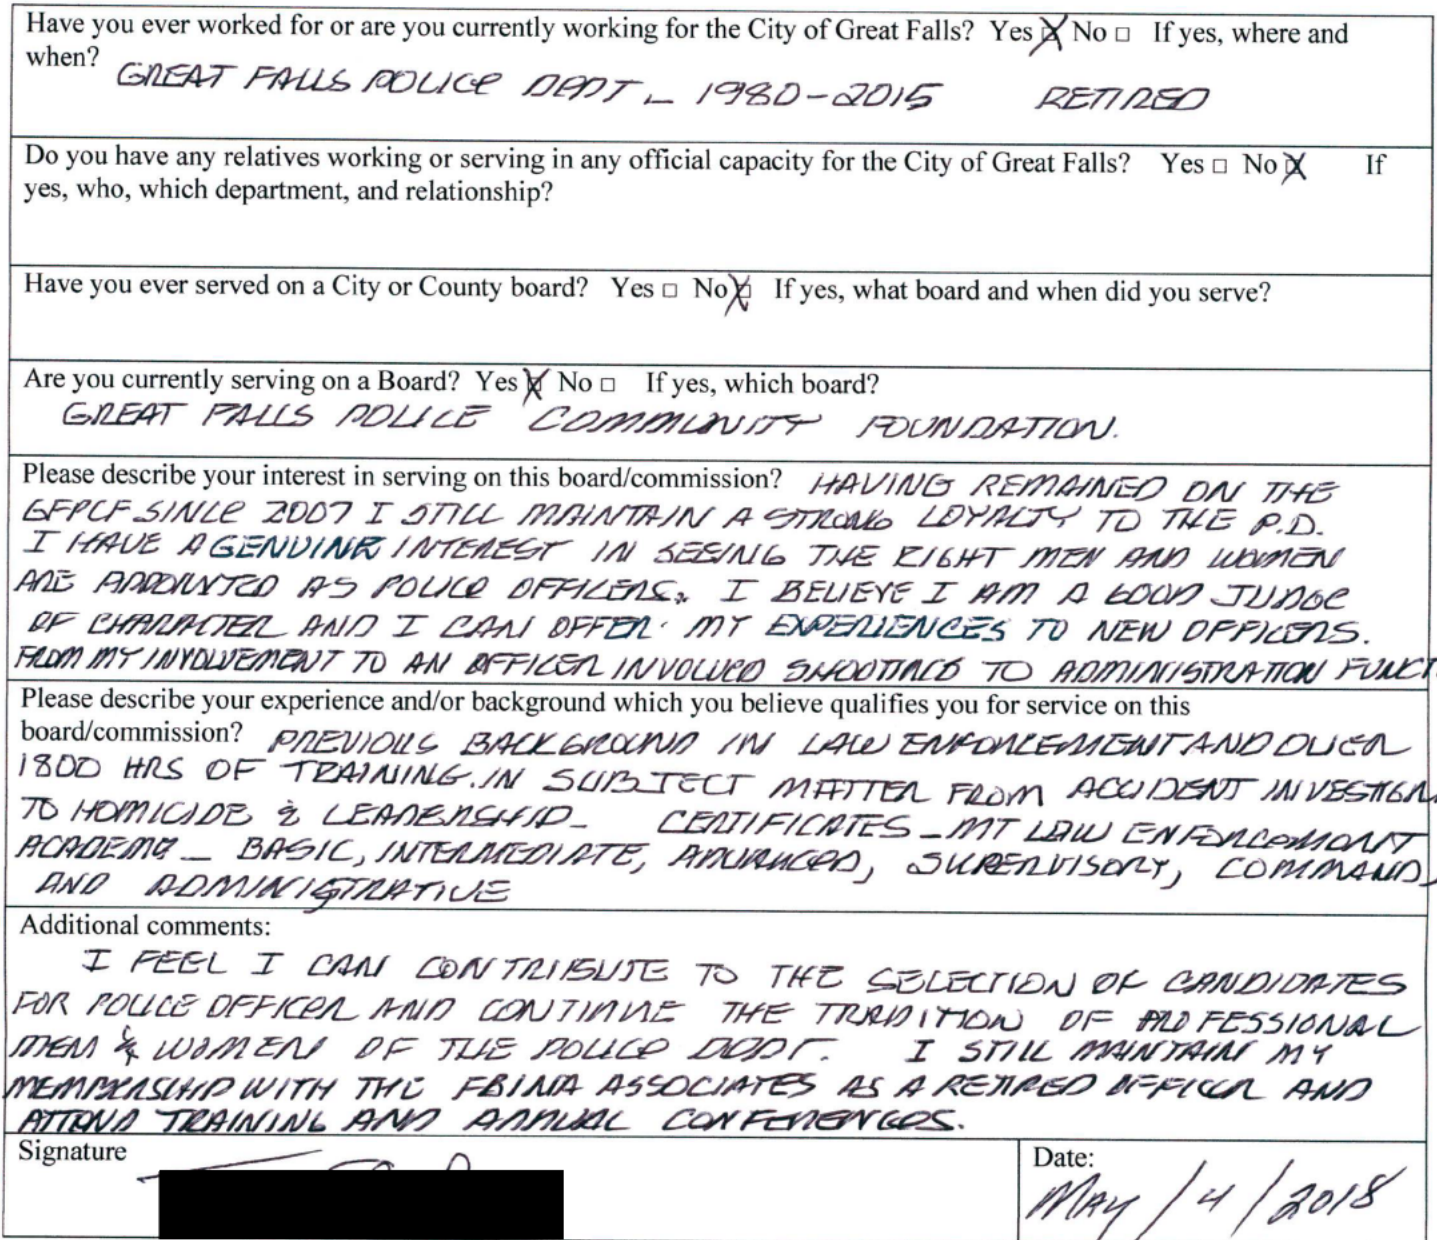 Have you ever worked for or are you currently working for the City of Great Falls? Yes ☒ No □ If yes, where and
when? GREAT FALLS POLICE DEPT - 1980-2015 RETIRED
Do you have any relatives working or serving in any official capacity for the City of Great Falls? Yes □ No ☒ If
yes, who, which department, and relationship?
Have you ever served on a City or County board? Yes □ No ☒ If yes, what board and when did you serve?
Are you currently serving on a Board? Yes ☒ No □ If yes, which board?
GREAT FALLS POLICE COMMUNITY FOUNDATION.
Please describe your interest in serving on this board/commission? HAVING REMAINED ON THE
GFPCF SINCE 2007 I STILL MAINTAIN A STRONG LOYALTY TO THE P.D.
I HAVE A GENUINE INTEREST IN SEEING THE RIGHT MEN AND WOMEN
ARE APPOINTED AS POLICE OFFICERS. I BELIEVE I AM A GOOD JUDGE
OF CHARACTER AND I CAN OFFER MY EXPERIENCES TO NEW OFFICERS.
FROM MY INVOLVEMENT TO AN OFFICER INVOLVED SHOOTING TO ADMINISTRATION FUNCT
Please describe your experience and/or background which you believe qualifies you for service on this
board/commission? PREVIOUS BACKGROUND IN LAW ENFORCEMENT AND OVER
1800 HRS OF TRAINING. IN SUBJECT MATTER FROM ACCIDENT INVESTIGA
TO HOMICIDE & LEADERSHIP - CERTIFICATES - MT LAW ENFORCEMENT
ACADEMY - BASIC, INTERMEDIATE, ADVANCED, SUPERVISORY, COMMAND,
AND ADMINISTRATIVE
Additional comments:
I FEEL I CAN CONTRIBUTE TO THE SELECTION OF CANDIDATES
FOR POLICE OFFICER AND CONTINUE THE TRADITION OF PROFESSIONAL
MEN & WOMEN OF THE POLICE DEPT. I STILL MAINTAIN MY
MEMBERSHIP WITH THE FBINA ASSOCIATES AS A RETIRED OFFICER AND
ATTEND TRAINING AND ANNUAL CONFERENCES.
Signature
Date:
MAY / 4 / 2018